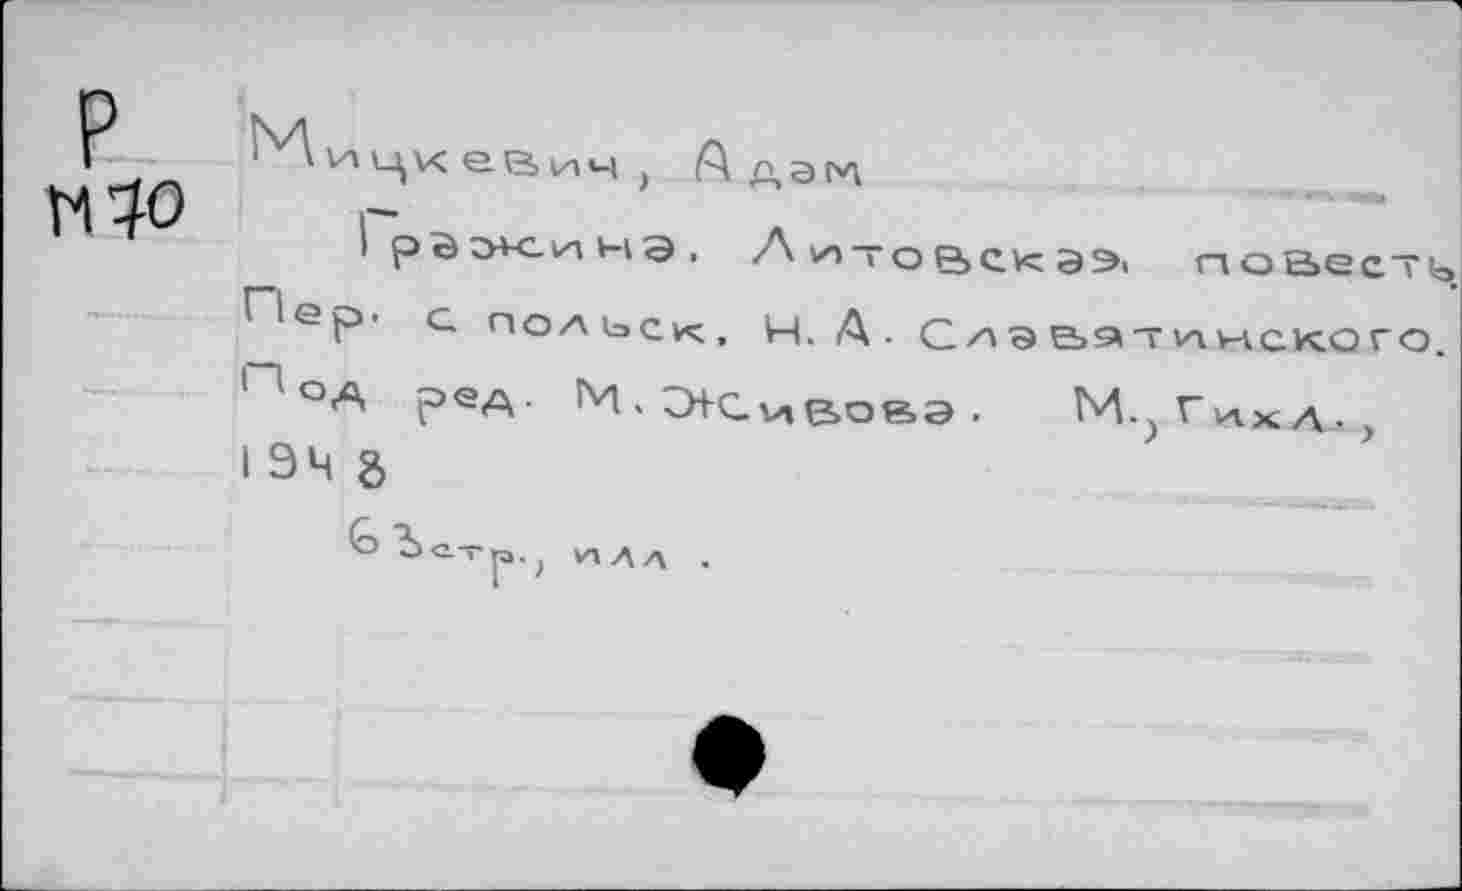 Р
М70
Мицкевич, Адам
Гражина. Литовская повесть.
Пер. с польск. Н. А. Славятинского.
Под ред. М. Живова. М., Гихл.,
1948
63 стр., илл.